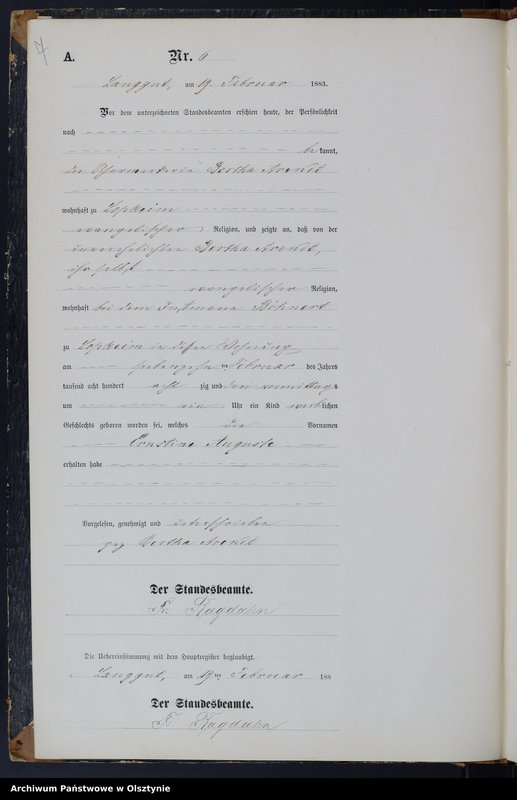 A. Nr. 6
Langgut, am 19. Februar 1883.
Vor dem unterzeichneten Standesbeamten erschien heute, der Persönlichkeit
nach
bekannt,
die Bertha Arendt
wohnhaft zu Lopkeim
evangelischer Religion, und zeigte an, daß von der
unverehelichten Bertha Arendt,
ihr selbst
evangelischer Religion,
wohnhaft bei dem Instmann Böhnert
zu Lopkeim in dessen Wohnung
am siebenzehn ten Februar des Jahres
tausend acht hundert acht zig und drei vormittags
um ein Uhr ein Kind weiblichen
Geschlechts geboren worden sei, welches die Vornamen
Ernstine Auguste
erhalten habe
Vorgelesen, genehmigt und unterschrieben
gez Bertha Arendt
Der Standesbeamte.
Fr. Ragdahn
Die Uebereinstimmung mit dem Hauptregister beglaubigt.
Langgut, am 19ten Februar 188
Der Standesbeamte.
Fr. Ragdahn
Archiwum Państwowe w Olsztynie